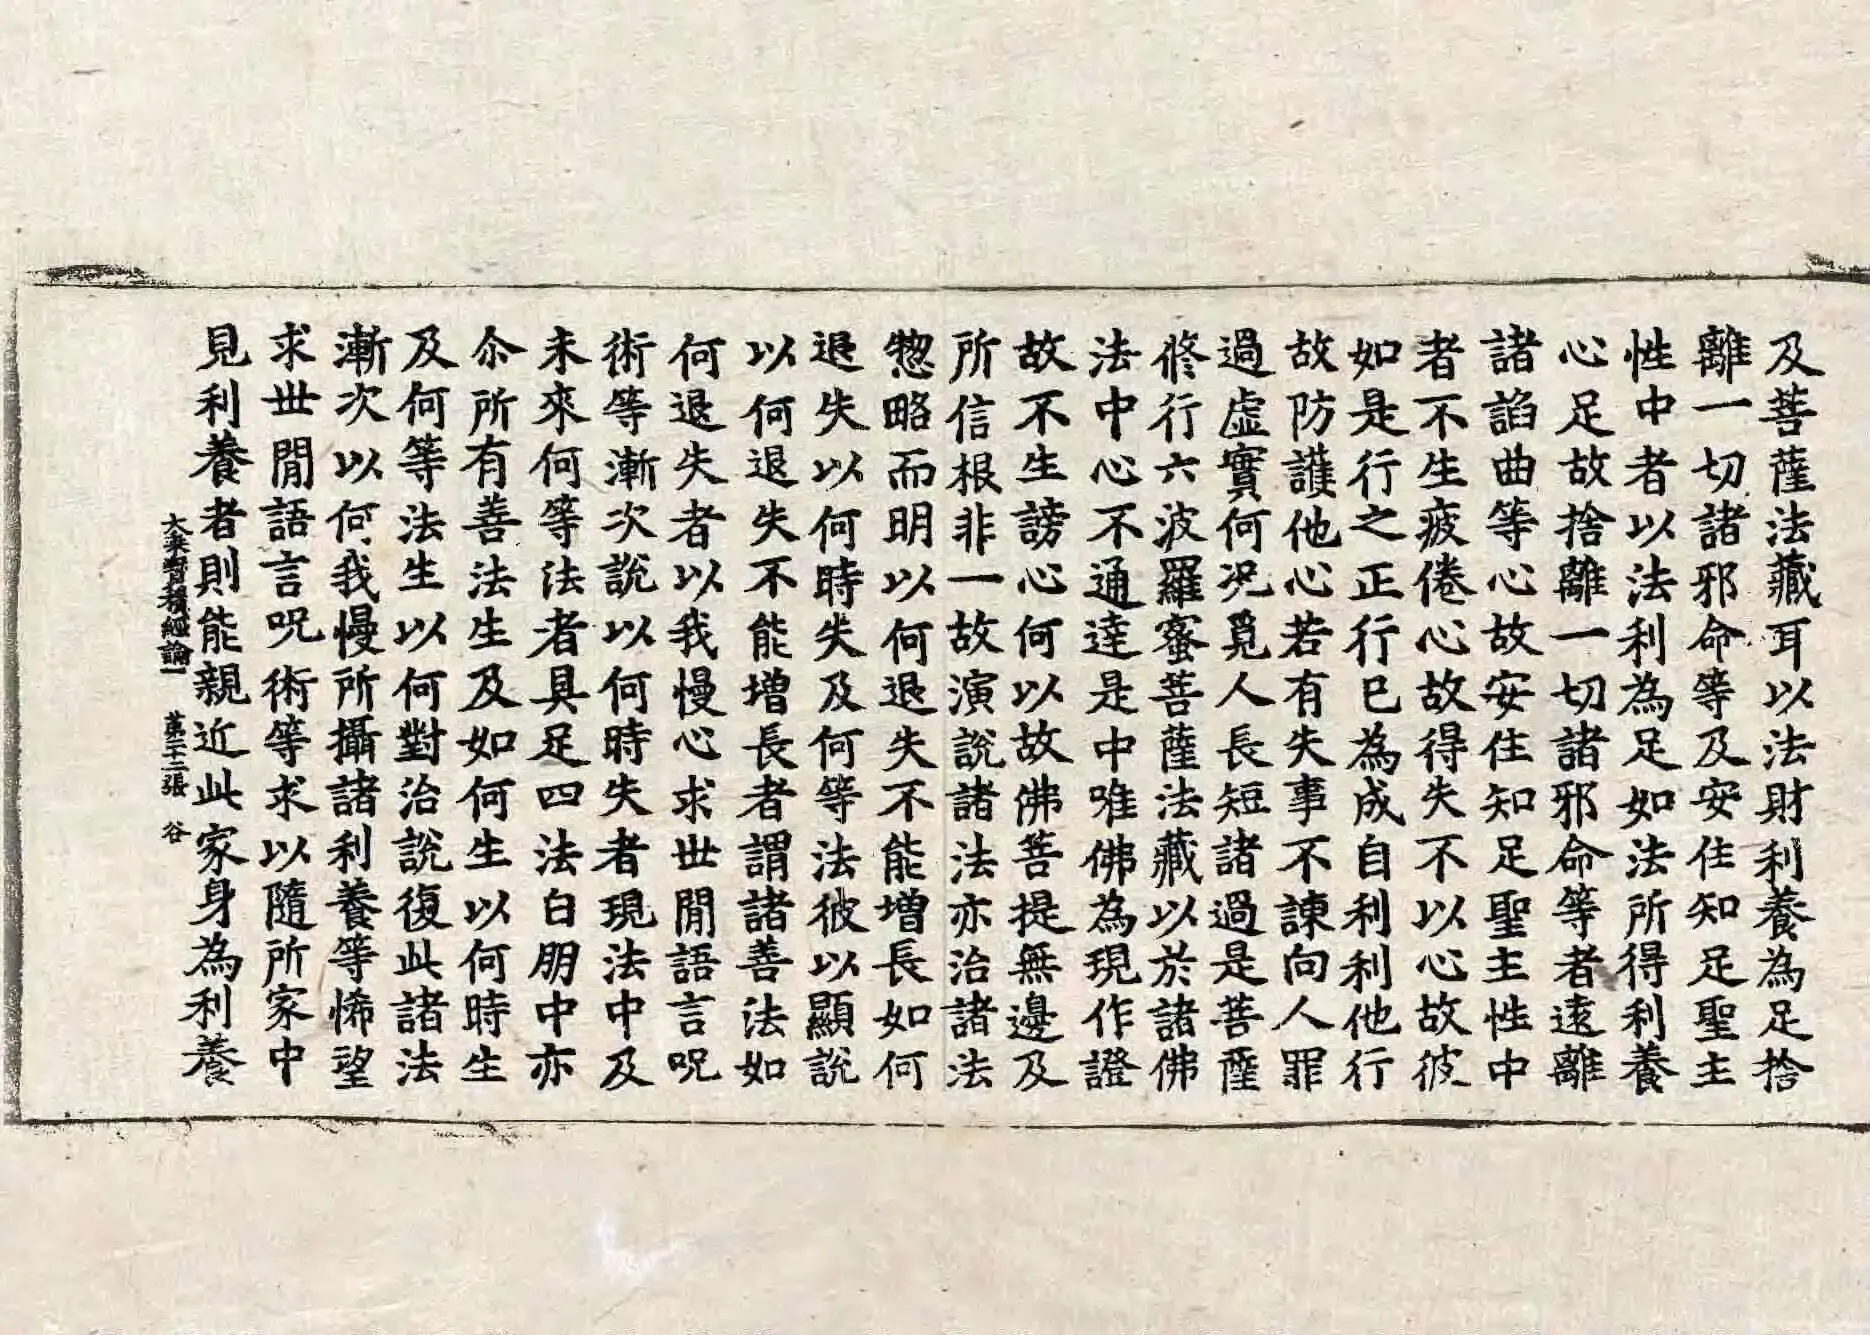 及菩薩法藏耳以法財利養為足捨
離一切諸邪命等及安住知足聖主
性中者以法利為足如法所得利養
心足故捨離一切諸邪命等者遠離
諸諂曲等心故安住知足聖主性中
者不生疲倦心故得失不以心故彼
如是行之正行已為成自利利他行
故防護他心若有失事不諫向人罪
過虛實何況覓人長短諸過是菩薩
修行六波羅蜜菩薩法藏以於諸佛
法中心不通達是中唯佛為現作證
故不生謗心何以故佛菩提無邊及
所信根非一故演說諸法亦治諸法
惣略而明以何退失不能增長如何
退失以何時失及何等法彼以顯說
以何退失不能增長者謂諸善法如
何退失者以我慢心求世閒語言呪
術等漸次說以何時失者現法中及
未來何等法者具足四法白朋中亦
尒所有善法生及如何生以何時生
及何等法生以何對治說復此諸法
漸次以何我慢所攝諸利養等悕望
求世閒語言呪術等求以隨所家中
見利養者則能親近此家身為利養
大乘寶積經論一 第二十二張 谷